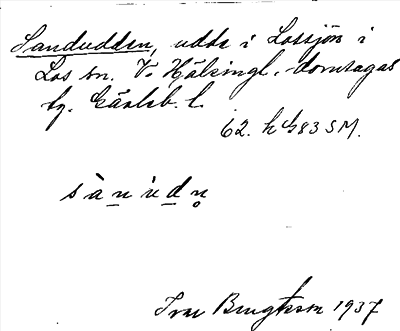 Sandudden, udde i Lossjön i
Los sn. V. Hälsingl. domsagas
tg. Gävleb. l.
62. h G83 SM.
s à n ù d n̥
Ivar Bengtsson 1937